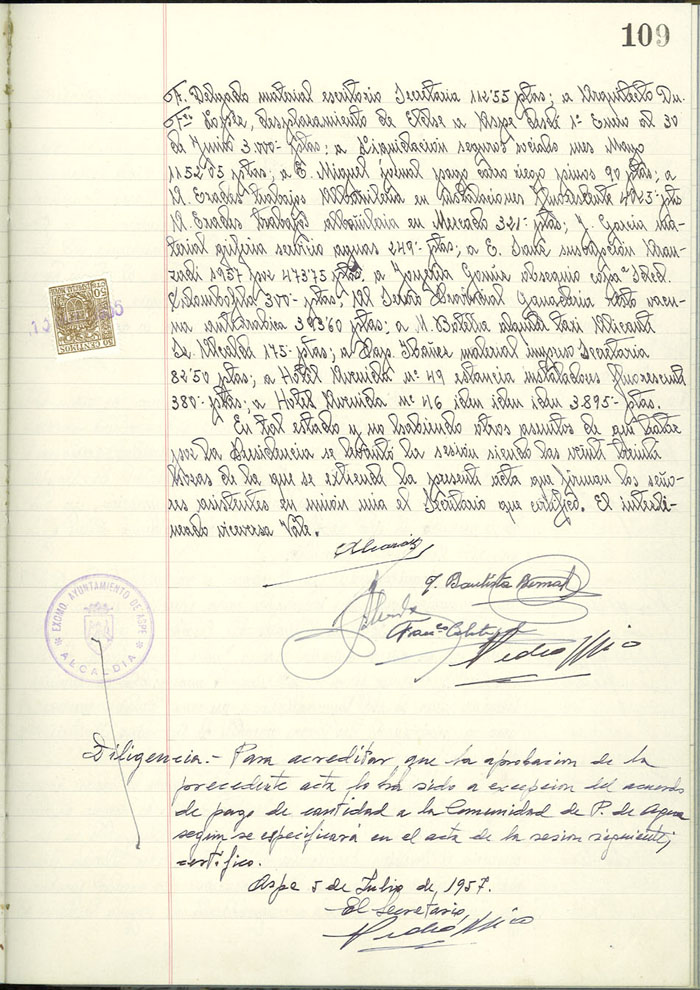 109
F. Delgado material escritorio Secretaria 112'55 ptas; a Arquitecto Dn.
Fco López, desplazamiento de Elche a Aspe desde 1º Enero al 30
de Junio 3.000- ptas; a Liquidación seguros sociales mes Mayo
1152'05 ptas; a E. Miguel jornal pago riego pinos 90 ptas; a
A. Erades trabajos Albañilería en instalaciones fluorescente 4925- ptas
A. Erades trabajos albañilería en Mercado 321- ptas; J. García ma-
terial grifería servicio aguas 249- ptas; a E. subscripción
1957 por 473'75 ptas; a obsequio
Colombofila 300- ptas; Al Provincial Ganadería vacu-
na antirrabica 393'60 ptas; a M. Botella alquiler taxi Alicante
Sr. Alcalde 175- ptas; a Ibáñez material impreso Secretaria
82'50 ptas; a Hotel Avenida nº 49 estancia instaladores fluorescente
380- ptas; a Hotel Avenida nº 46 iden iden iden 3895- ptas.
En tal estado y no habiendo otros asuntos de que tratar
por la Presidencia se levantó la sesión siendo las veinte treinta
horas de la que se extiende la presente acta que firman los seño-
res asistentes en unión mia el Secretario que certifico. El interli-
neado viceversa Vale.
50 CENTIMOS
EXCMO. AYUNTAMIENTO DE ASPE
ALCALDIA
J. Bautista Bernal
Pedro Mico
Diligencia.- Para acreditar que la aprobacion de la
precedente acta lo ha sido a excepcion del acuerdo
de pago de cantidad a la Comunidad de P. de Aguas
segun se especificará en el acta de la sesion siguiente;
certifico.
Aspe 5 de Julio de 1957.
El Secretario,
Pedro Mico